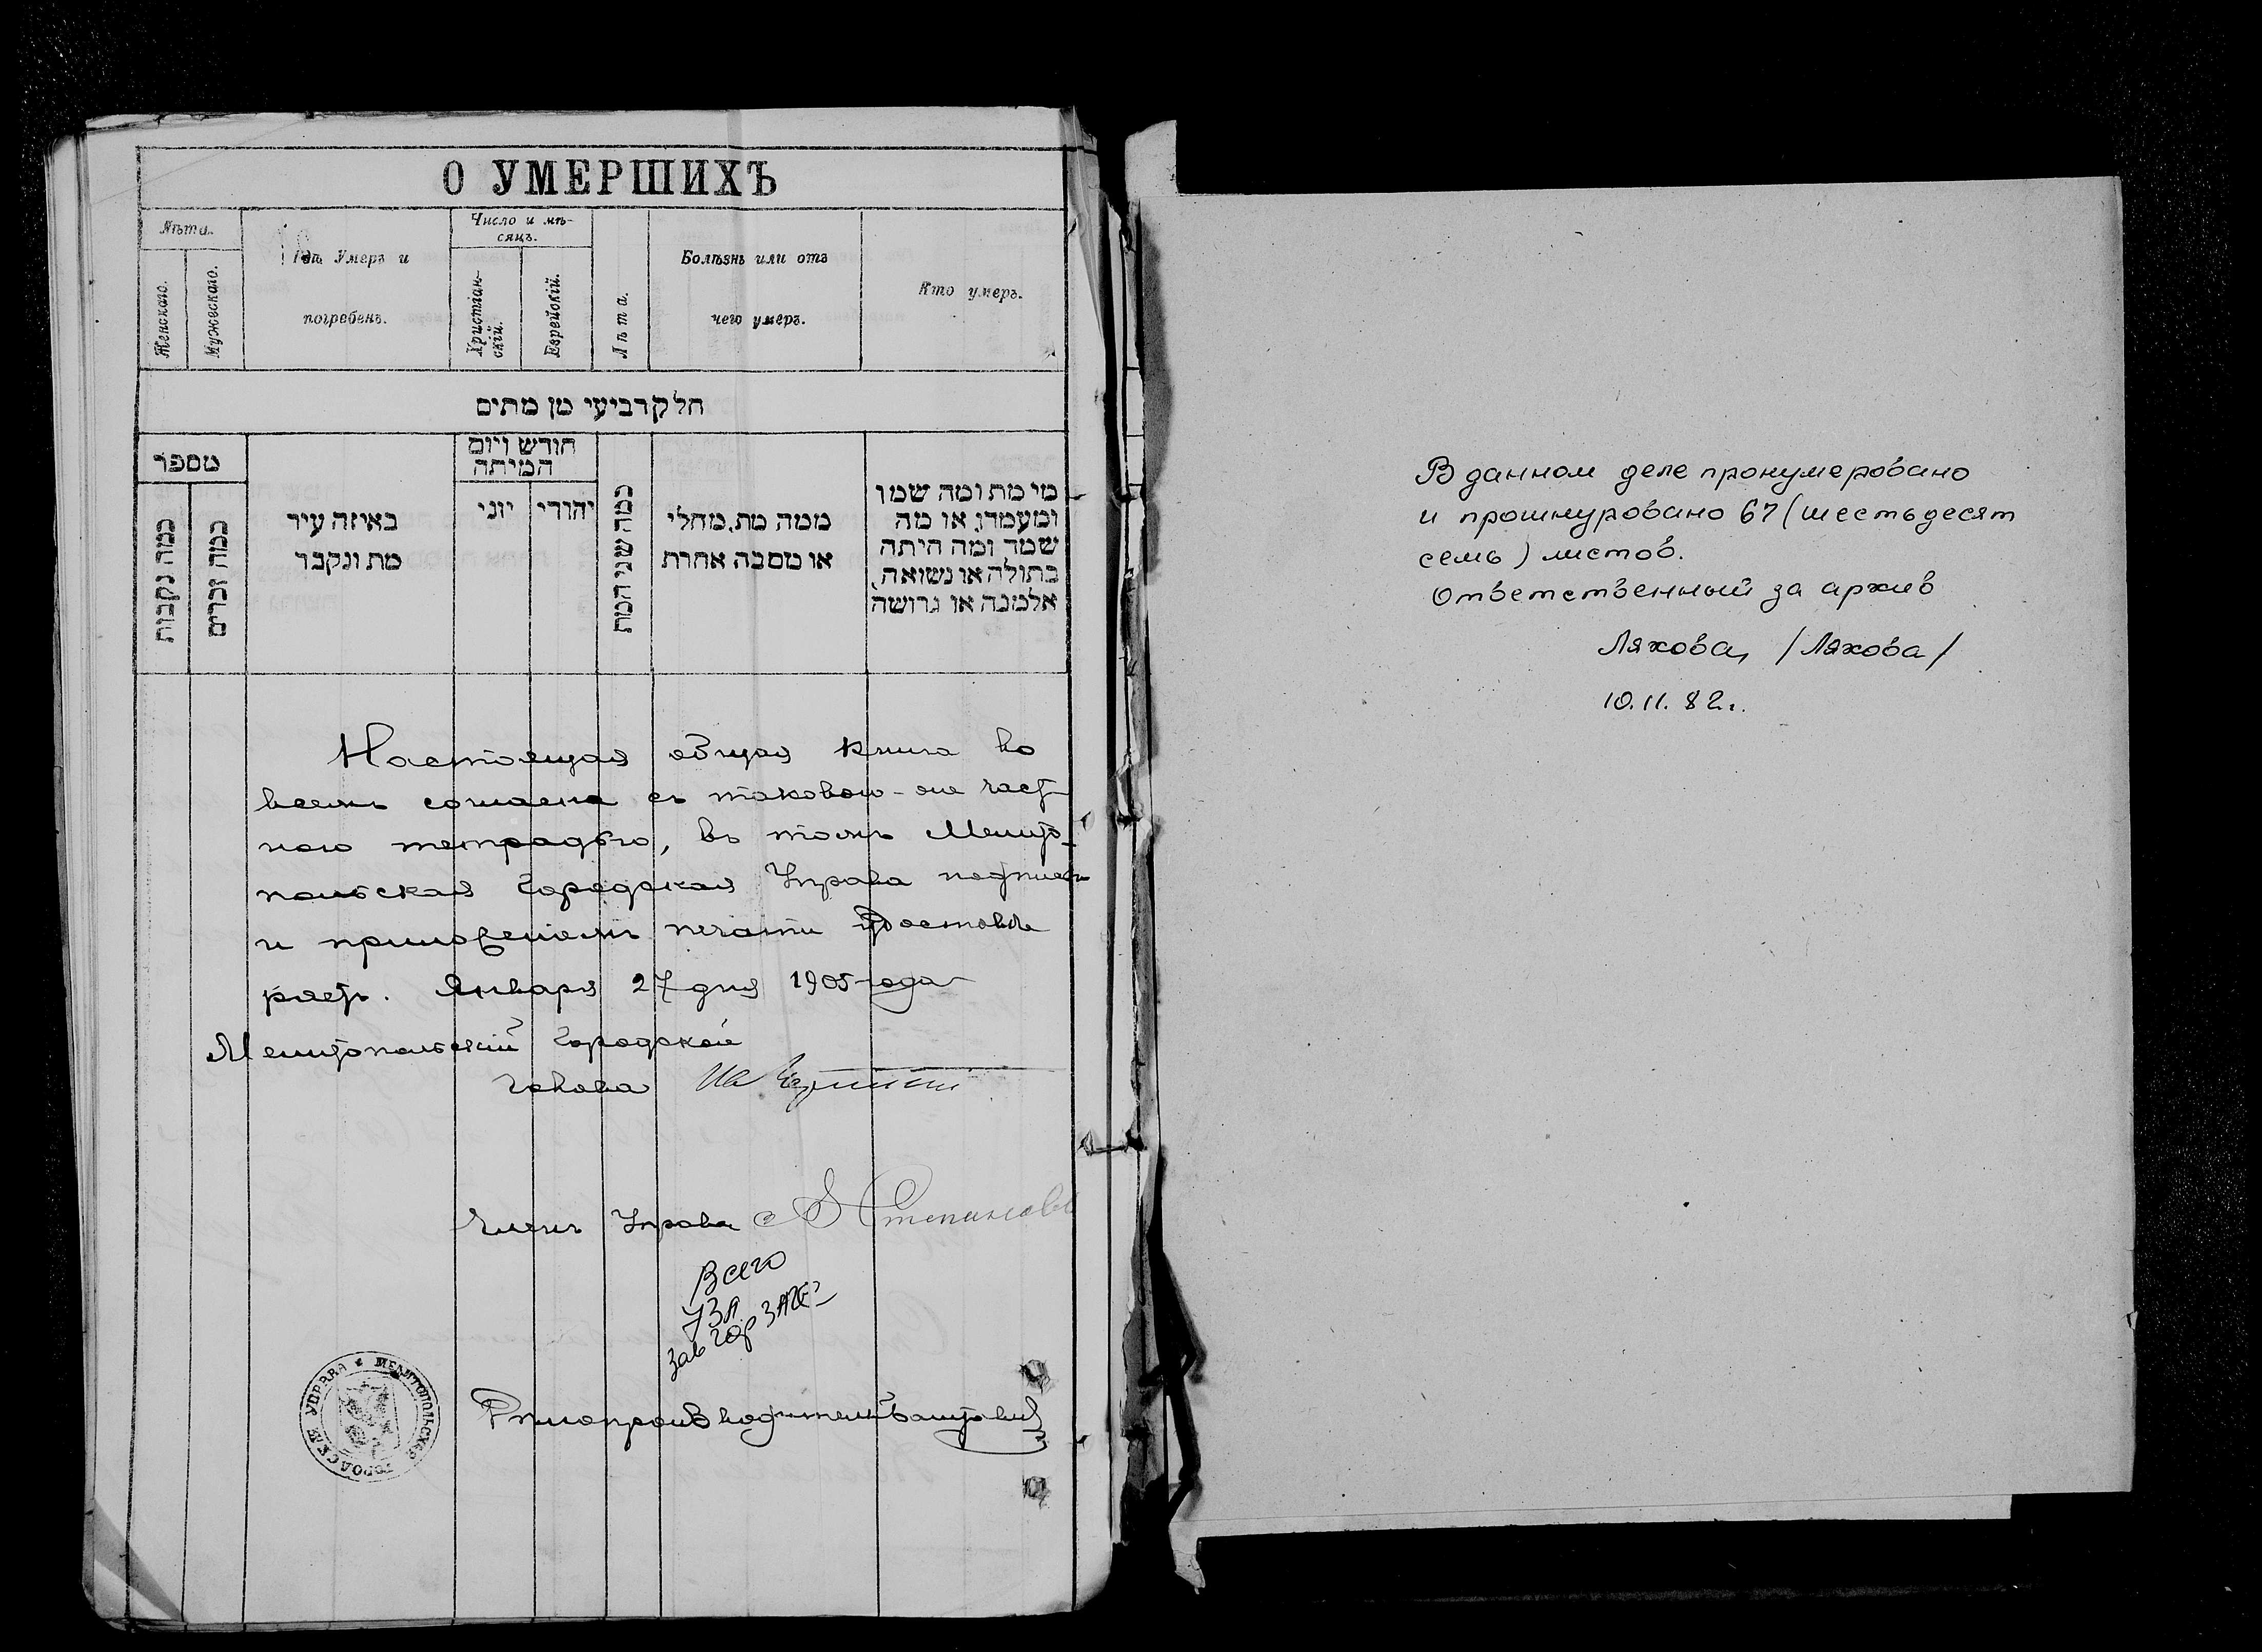 О УМЕРШИХЪ
Лѣта.
Женскаго.
Мужескаго.
Гдѣ Умеръ и
погребенъ.
Число и мѣ-
сяцъ.
Христіан-
скій.
Еврейскій.
Лѣта.
Болѣзнь или отъ
чего умеръ.
Кто умеръ.
חלק רביעי מן מתים
מספר
כמה נקבות
כמה זכרים
באיזה עיר
מת ונקבר
חודש ויום
המיתה
יוני
יהודי
כמה שני המת
ממה מת, מחלי
או מסבה אחרת
מי מת ומה שמו
ומעמדו, או מה
שמה ומה היתה
בתולה או נשואה,
אלמנה או גרושה
Настоящая общая книга во
всемъ согласна съ таковою-же част-
ною тетрадью, въ томъ Мелито-
польская Городская Управа подписью
и приложеніемъ печати удостовѣ
ряетъ. Января 27 дня 1905 года
Мелитопольскій Городской
Голова
Членъ Управы Степановъ
Всего
Зав гор ЗАГС
Дѣлопроизводитель
МЕЛИТОПОЛЬСКАЯ ГОРОДСКАЯ УПРАВА
В данном деле пронумеровано
и прошнуровано 67 (шестьдесят
семь) листов.
Ответственный за архив
Ляхова /Ляхова/
10.11.82г.